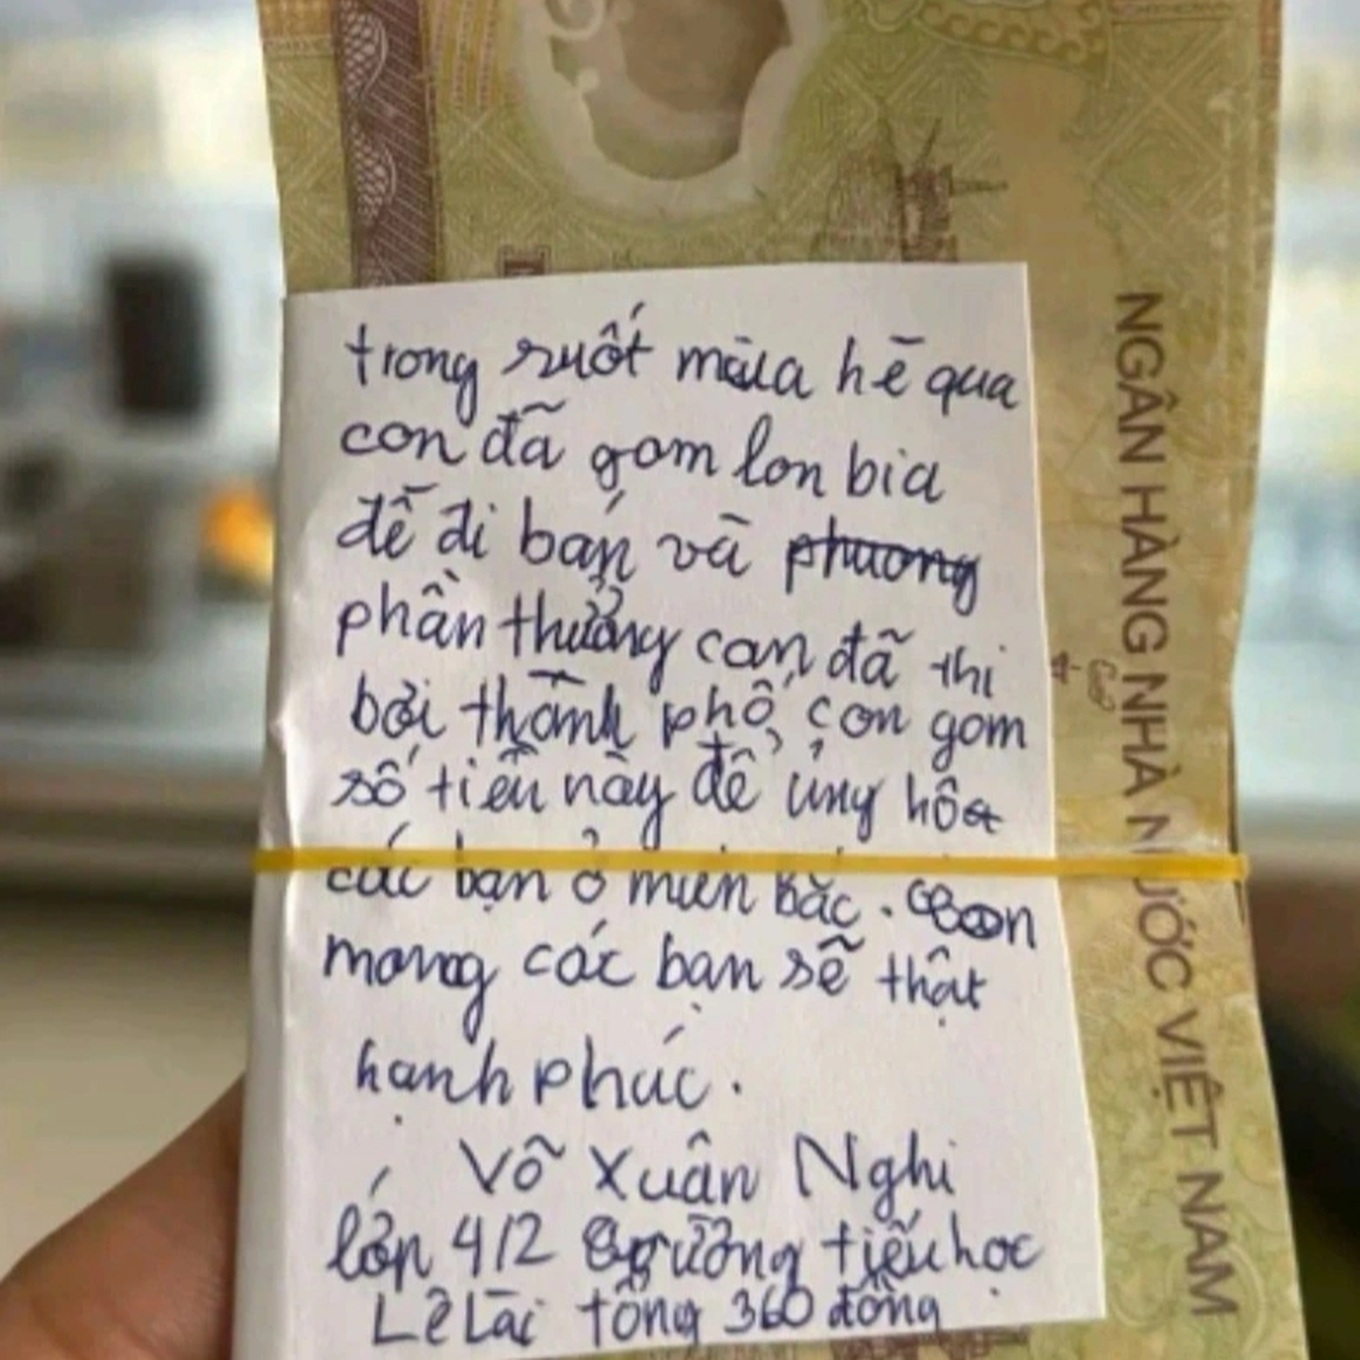 trong suốt mùa hè qua
con đã gom lon bia
để đi bán và phương
phần thưởng con đã thi
bơi thành phố, con gom
số tiền này để ủng hộ
các bạn ở miền Bắc. Con
mong các bạn sẽ thật
hạnh phúc.
Võ Xuân Nghi
lớp 4/2 trường tiểu học
Lê Lài tổng 360 đồng
NGÂN HÀNG NHÀ NƯỚC VIỆT NAM